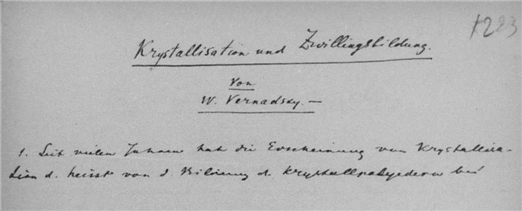 1283
Krystallisation und Zwillingsbildung.
von
W. Vernadsky. —
1. Seit vielen Jahren hat die Erscheinung von Krystallisa-
tion d. heisst von d. Bildung d. Krystallpolyedern bei